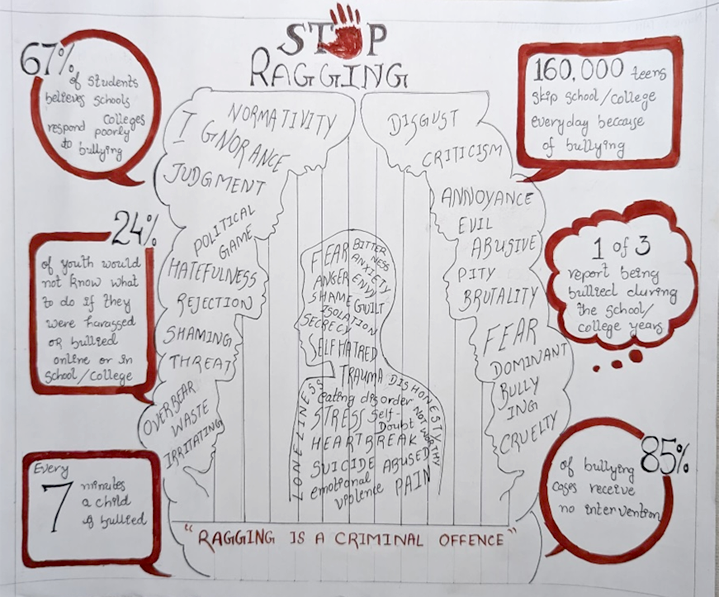 STOP
RAGGING
67%
of students
believes schools
colleges
respond poorly
to bullying
24%
of youth would
not know what
to do if they
were harassed
or bullied
online or in
school/college
Every
7 minutes
a child
is bullied
160,000 teens
skip school/college
everyday because
of bullying
1 of 3
report being
bullied during
the school/
college years
85%
of bullying
cases receive
no intervention
NORMATIVITY
IGNORANCE
JUDGMENT
POLITICAL
GAME
HATEFULNESS
REJECTION
SHAMING
THREAT
OVERBEAR
WASTE
IRRITATING
DISGUST
CRITICISM
ANNOYANCE
EVIL
ABUSIVE
PITY
BRUTALITY
FEAR
DOMINANT
BULLY
ING
CRUELTY
FEAR BITTER
NESS
ANXIETY
ANGER ENVY
SHAME GUILT
ISOLATION
SECRECY
SELF HATRED
TRAUMA DISHONESTY
LONELINESS
eating disorder
NOT WORTHY
STRESS Self-
Doubt
HEARTBREAK
SUICIDE ABUSED
emotional
violence PAIN
"RAGGING IS A CRIMINAL OFFENCE"